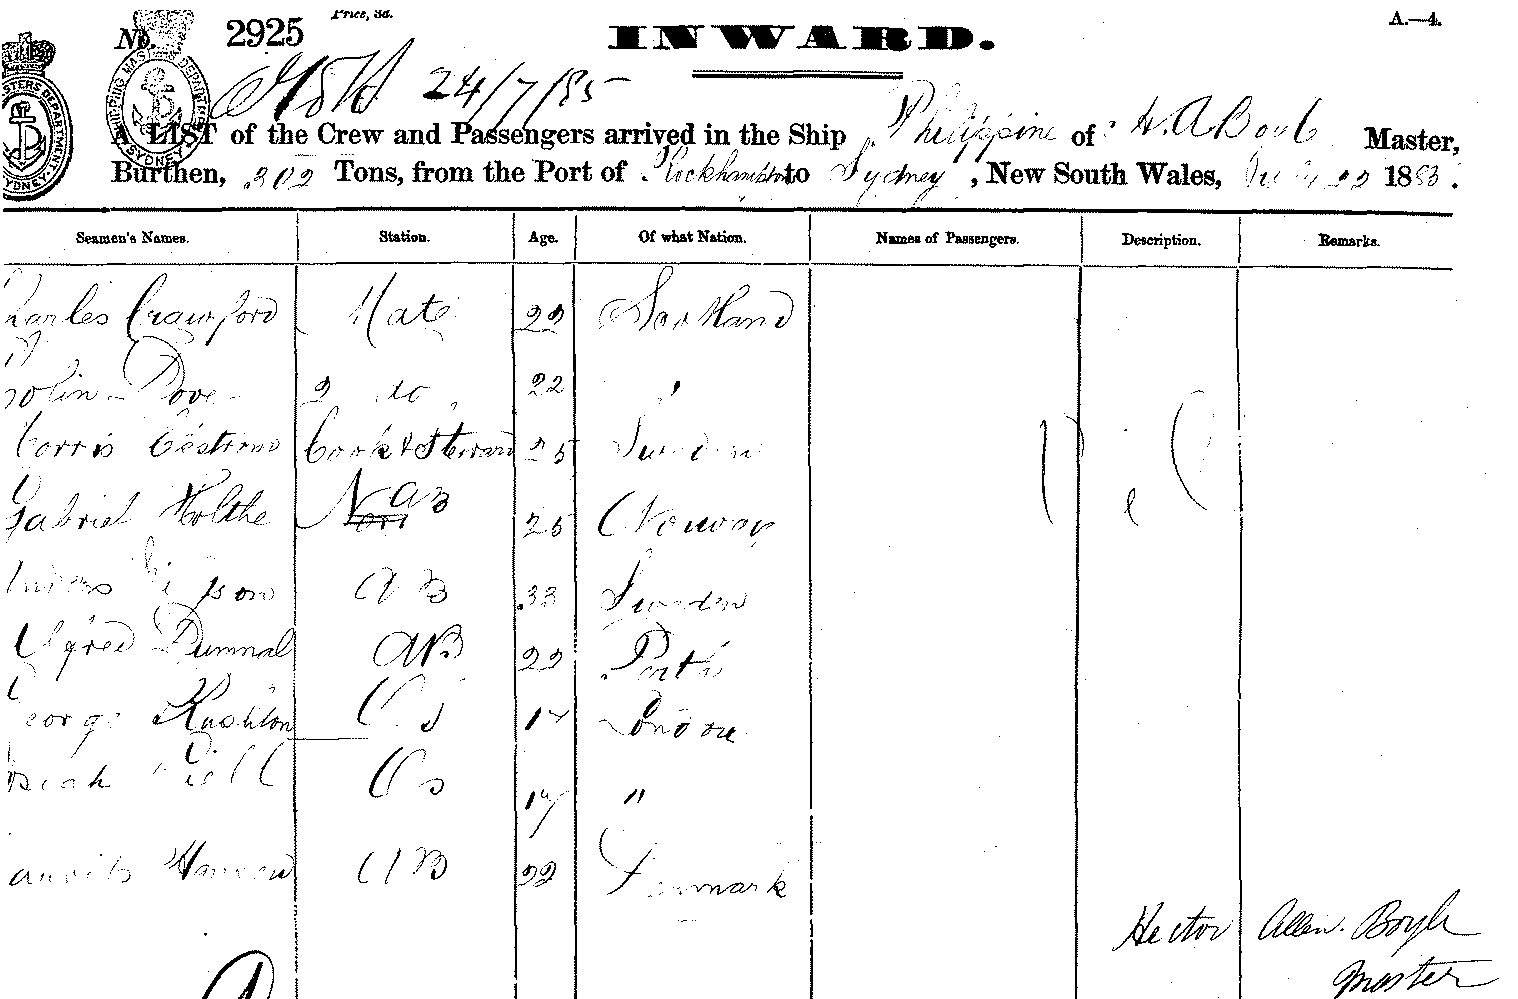 Price, 3d.
A.—4.
No. 2925
INWARD.
24/7/85
A LIST of the Crew and Passengers arrived in the Ship Philippine of H. A Boyle Master,
Burthen, 202 Tons, from the Port of Rockhampton to Sydney, New South Wales, July 22 188 .
Seamen's Names. Station. Age. Of what Nation. Names of Passengers. Description. Remarks.
Charles Crawford Mate 22 Scotland
Colin Dove 2 do 22 "
Cook & Steward 25 Sweden
Gabriel Holthe AB 25 Norway
AB 33 Sweden
Alfred AB 22 Perth
George Rushton OS 17 London
OS 17 "
Hansen AB 22 Denmark
Hector Allen Boyle
Master